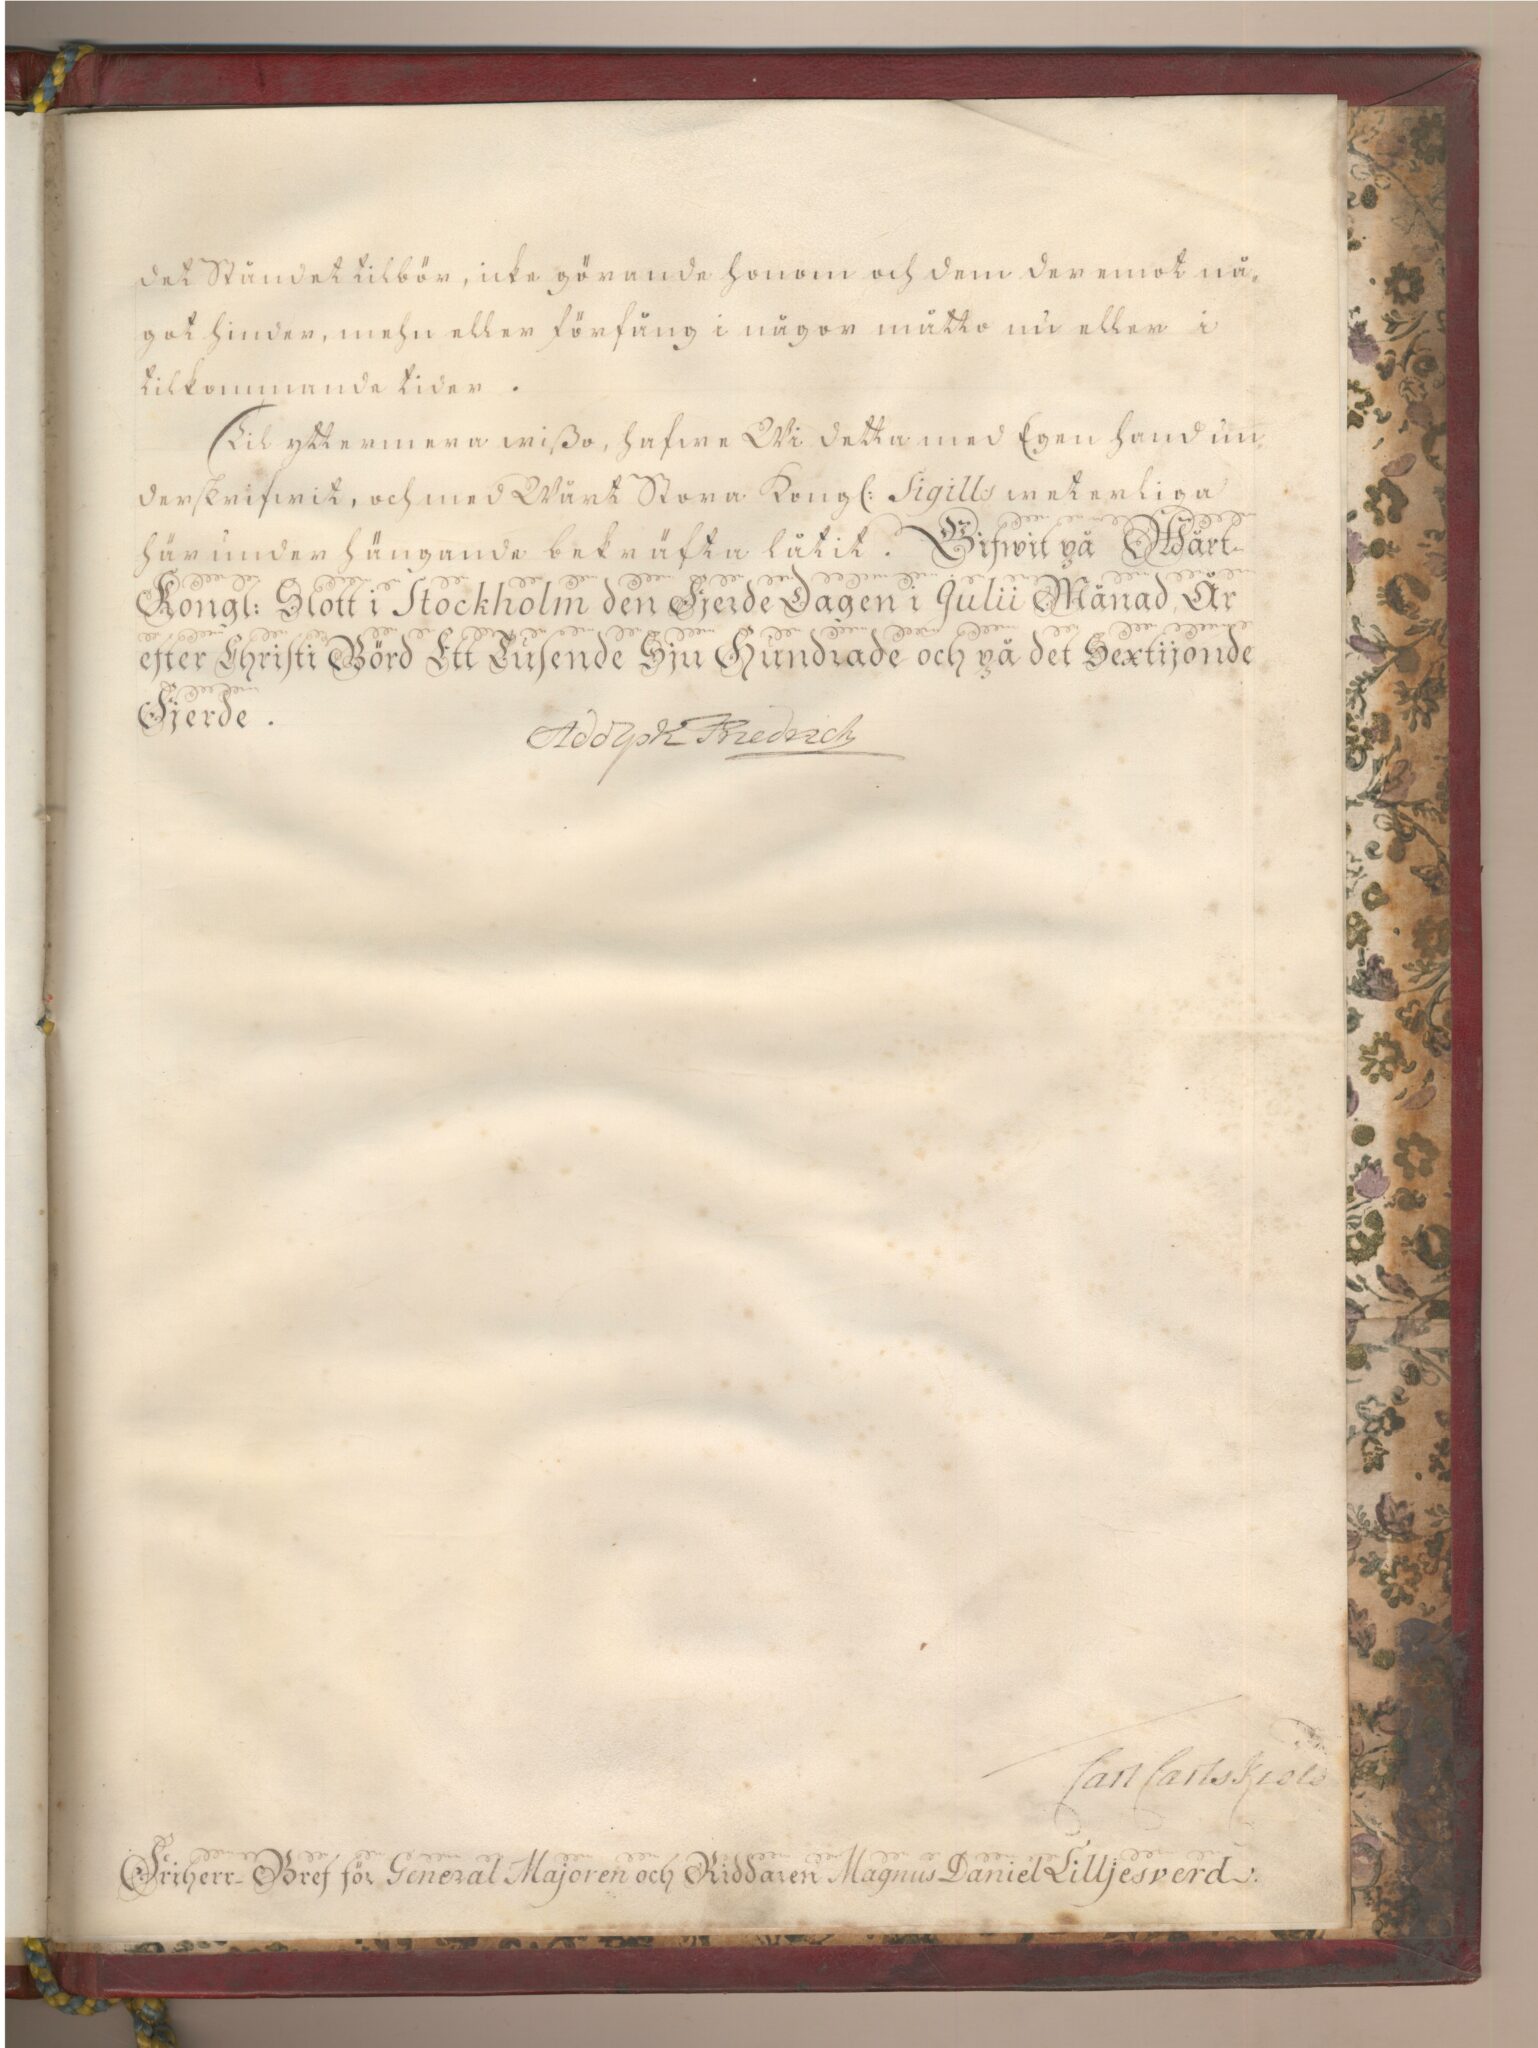 det Ståndet tilbör, icke görande honom och dem deremot nå-
got hinder, mehn eller förfång i någor måtto nu eller i
tilkommande tider.
Til yttermera wißo, hafwe Wi detta med Egen hand un-
derskrifwit, och med Wårt Stora Kongl: Sigills weterliga
härunder hängande bekräfta låtit. Gifwit på Wårt
Kongl: Slott i Stockholm den Fjerde Dagen i Julii Månad, År
efter Christi Börd Ett Tusende Sju Hundrade och på det Sextijonde
Fjerde.
Adolph Friedrich
Carl Carlskiöld
Friherr-Bref för General Majoren och Riddaren Magnus Daniel Lilljesverd.